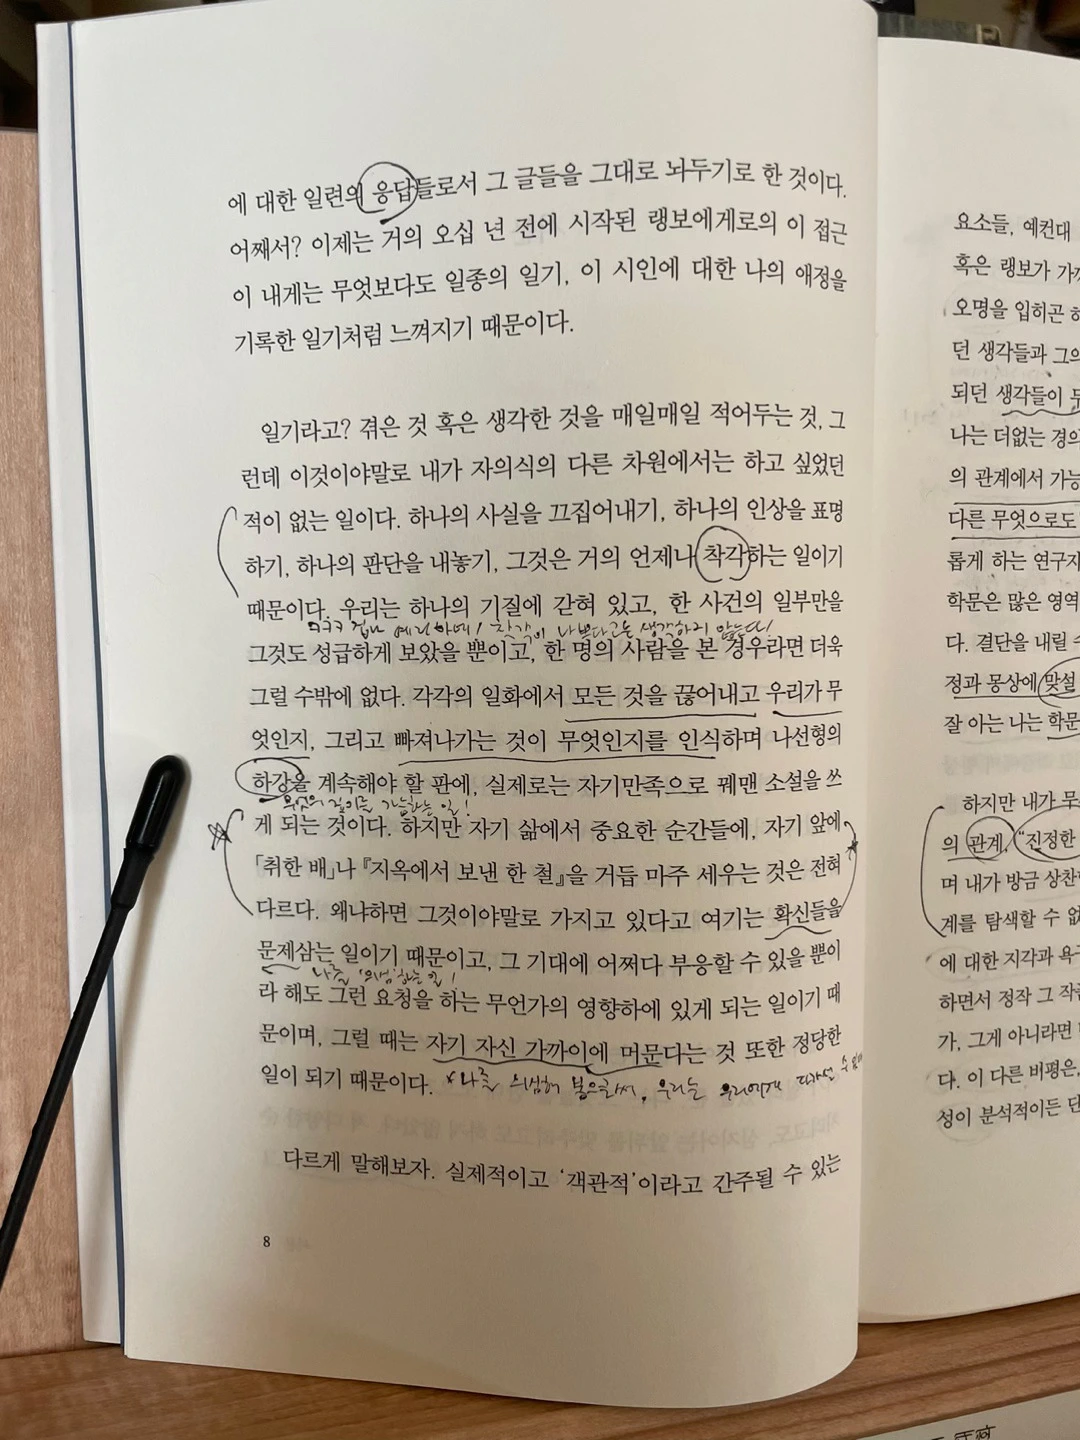 에 대한 일련의 응답들로서 그 글들을 그대로 놔두기로 한 것이다.
어째서? 이제는 거의 오십 년 전에 시작된 랭보에게로의 이 접근
이 내게는 무엇보다도 일종의 일기, 이 시인에 대한 나의 애정을
기록한 일기처럼 느껴지기 때문이다.
일기라고? 겪은 것 혹은 생각한 것을 매일매일 적어두는 것, 그
런데 이것이야말로 내가 자의식의 다른 차원에서는 하고 싶었던
적이 없는 일이다. 하나의 사실을 끄집어내기, 하나의 인상을 표명
하기, 하나의 판단을 내놓기, 그것은 거의 언제나 착각하는 일이기
때문이다. 우리는 하나의 기질에 갇혀 있고, 한 사건의 일부만을
ㅋㅋㅋ 겁나 예리하네! 착각이 나쁘다고는 생각하지 않는다!
그것도 성급하게 보았을 뿐이고, 한 명의 사람을 본 경우라면 더욱
그럴 수밖에 없다. 각각의 일화에서 모든 것을 끊어내고 우리가 무
엇인지, 그리고 빠져나가는 것이 무엇인지를 인식하며 나선형의
하강을 계속해야 할 판에, 실제로는 자기만족으로 꿰맨 소설을 쓰
깊이를 가늠하는 일!
게 되는 것이다. 하지만 자기 삶에서 중요한 순간들에, 자기 앞에
「취한 배」나 『지옥에서 보낸 한 철』을 거듭 마주 세우는 것은 전혀
다르다. 왜냐하면 그것이야말로 가지고 있다고 여기는 확신들을
문제삼는 일이기 때문이고, 그 기대에 어쩌다 부응할 수 있을 뿐이
나를 '의심'하는 일!
라 해도 그런 요청을 하는 무언가의 영향하에 있게 되는 일이기 때
문이며, 그럴 때는 자기 자신 가까이에 머문다는 것 또한 정당한
일이 되기 때문이다.
나를 의심해 봄으로써, 우리는 우리에게 다가설 수 있다
다르게 말해보자. 실제적이고 '객관적'이라고 간주될 수 있는
8
요소들, 예컨대
혹은 랭보가
오명을 입히곤
던 생각들과 그의
되던 생각들이
나는 더없는
의 관계에서
다른 무엇으로도
롭게 하는
학문은 많은 영역
다. 결단을 내릴
정과 몽상에 맞설
잘 아는 나는 학문
하지만 내가
의 관계, "진정한
며 내가 방금
계를 탐색할 수
에 대한 지각과
하면서 정작 그
가, 그게 아니라면
다. 이 다른 비평은,
성이 분석적이든